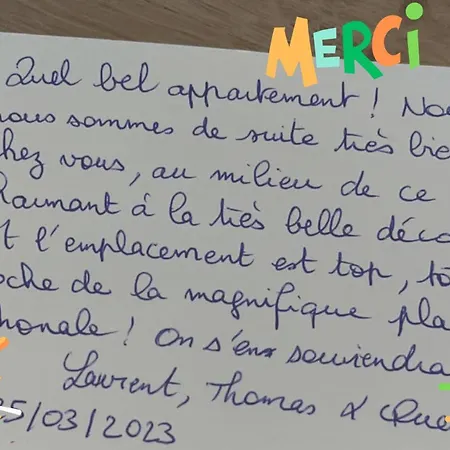 MERCi
Quel bel appartement! No
nous sommes de suite très bie
chez vous, au milieu de ce
harmant à la très belle déco
t l'emplacement est top, to
oche de la magnifique pla
honale! On s'en souviendra
Laurent, Thomas & Que
25/03/2023